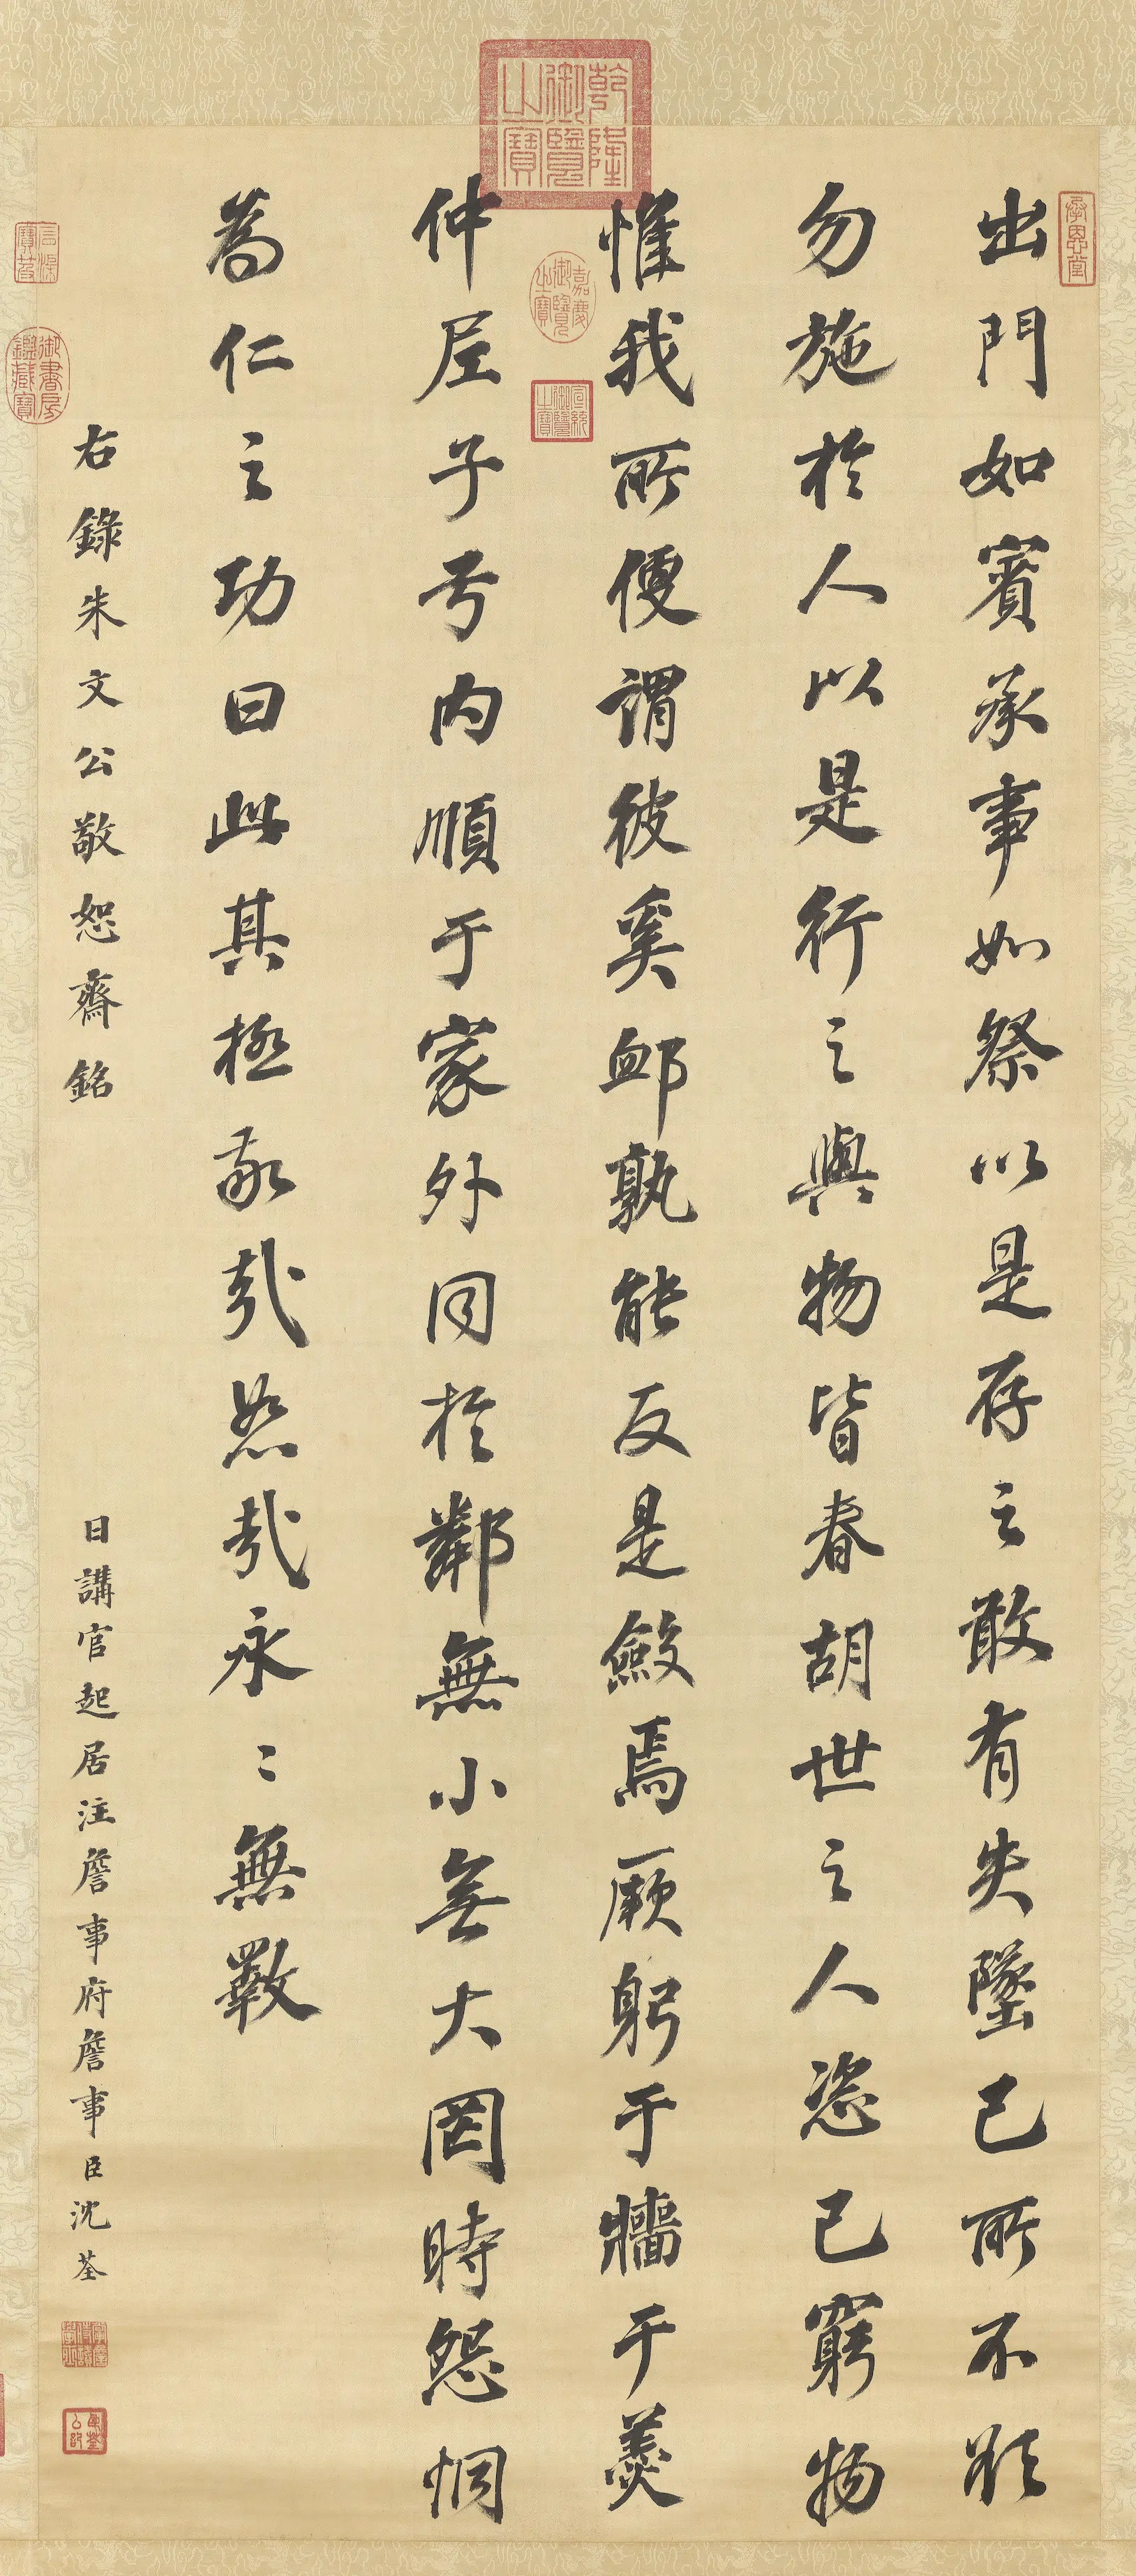 出門如賓承事如祭以是存之敢有失墜己所不欲
勿施於人以是行之與物皆春胡世之人恣己窮物
惟我所便謂彼奚卹孰能反是斂焉厥躬于牆于羹
仲尼子弓内順于家外同於鄰無小無大罔時怨恫
為仁之功曰此其極敬哉恕哉永〻無斁
右錄朱文公敬恕齋銘
日講官起居注詹事府詹事臣沈荃
乾隆御覽之寶
嘉慶御覽之寶
宣統御覽之寶
承恩堂
御書房鑑藏寶